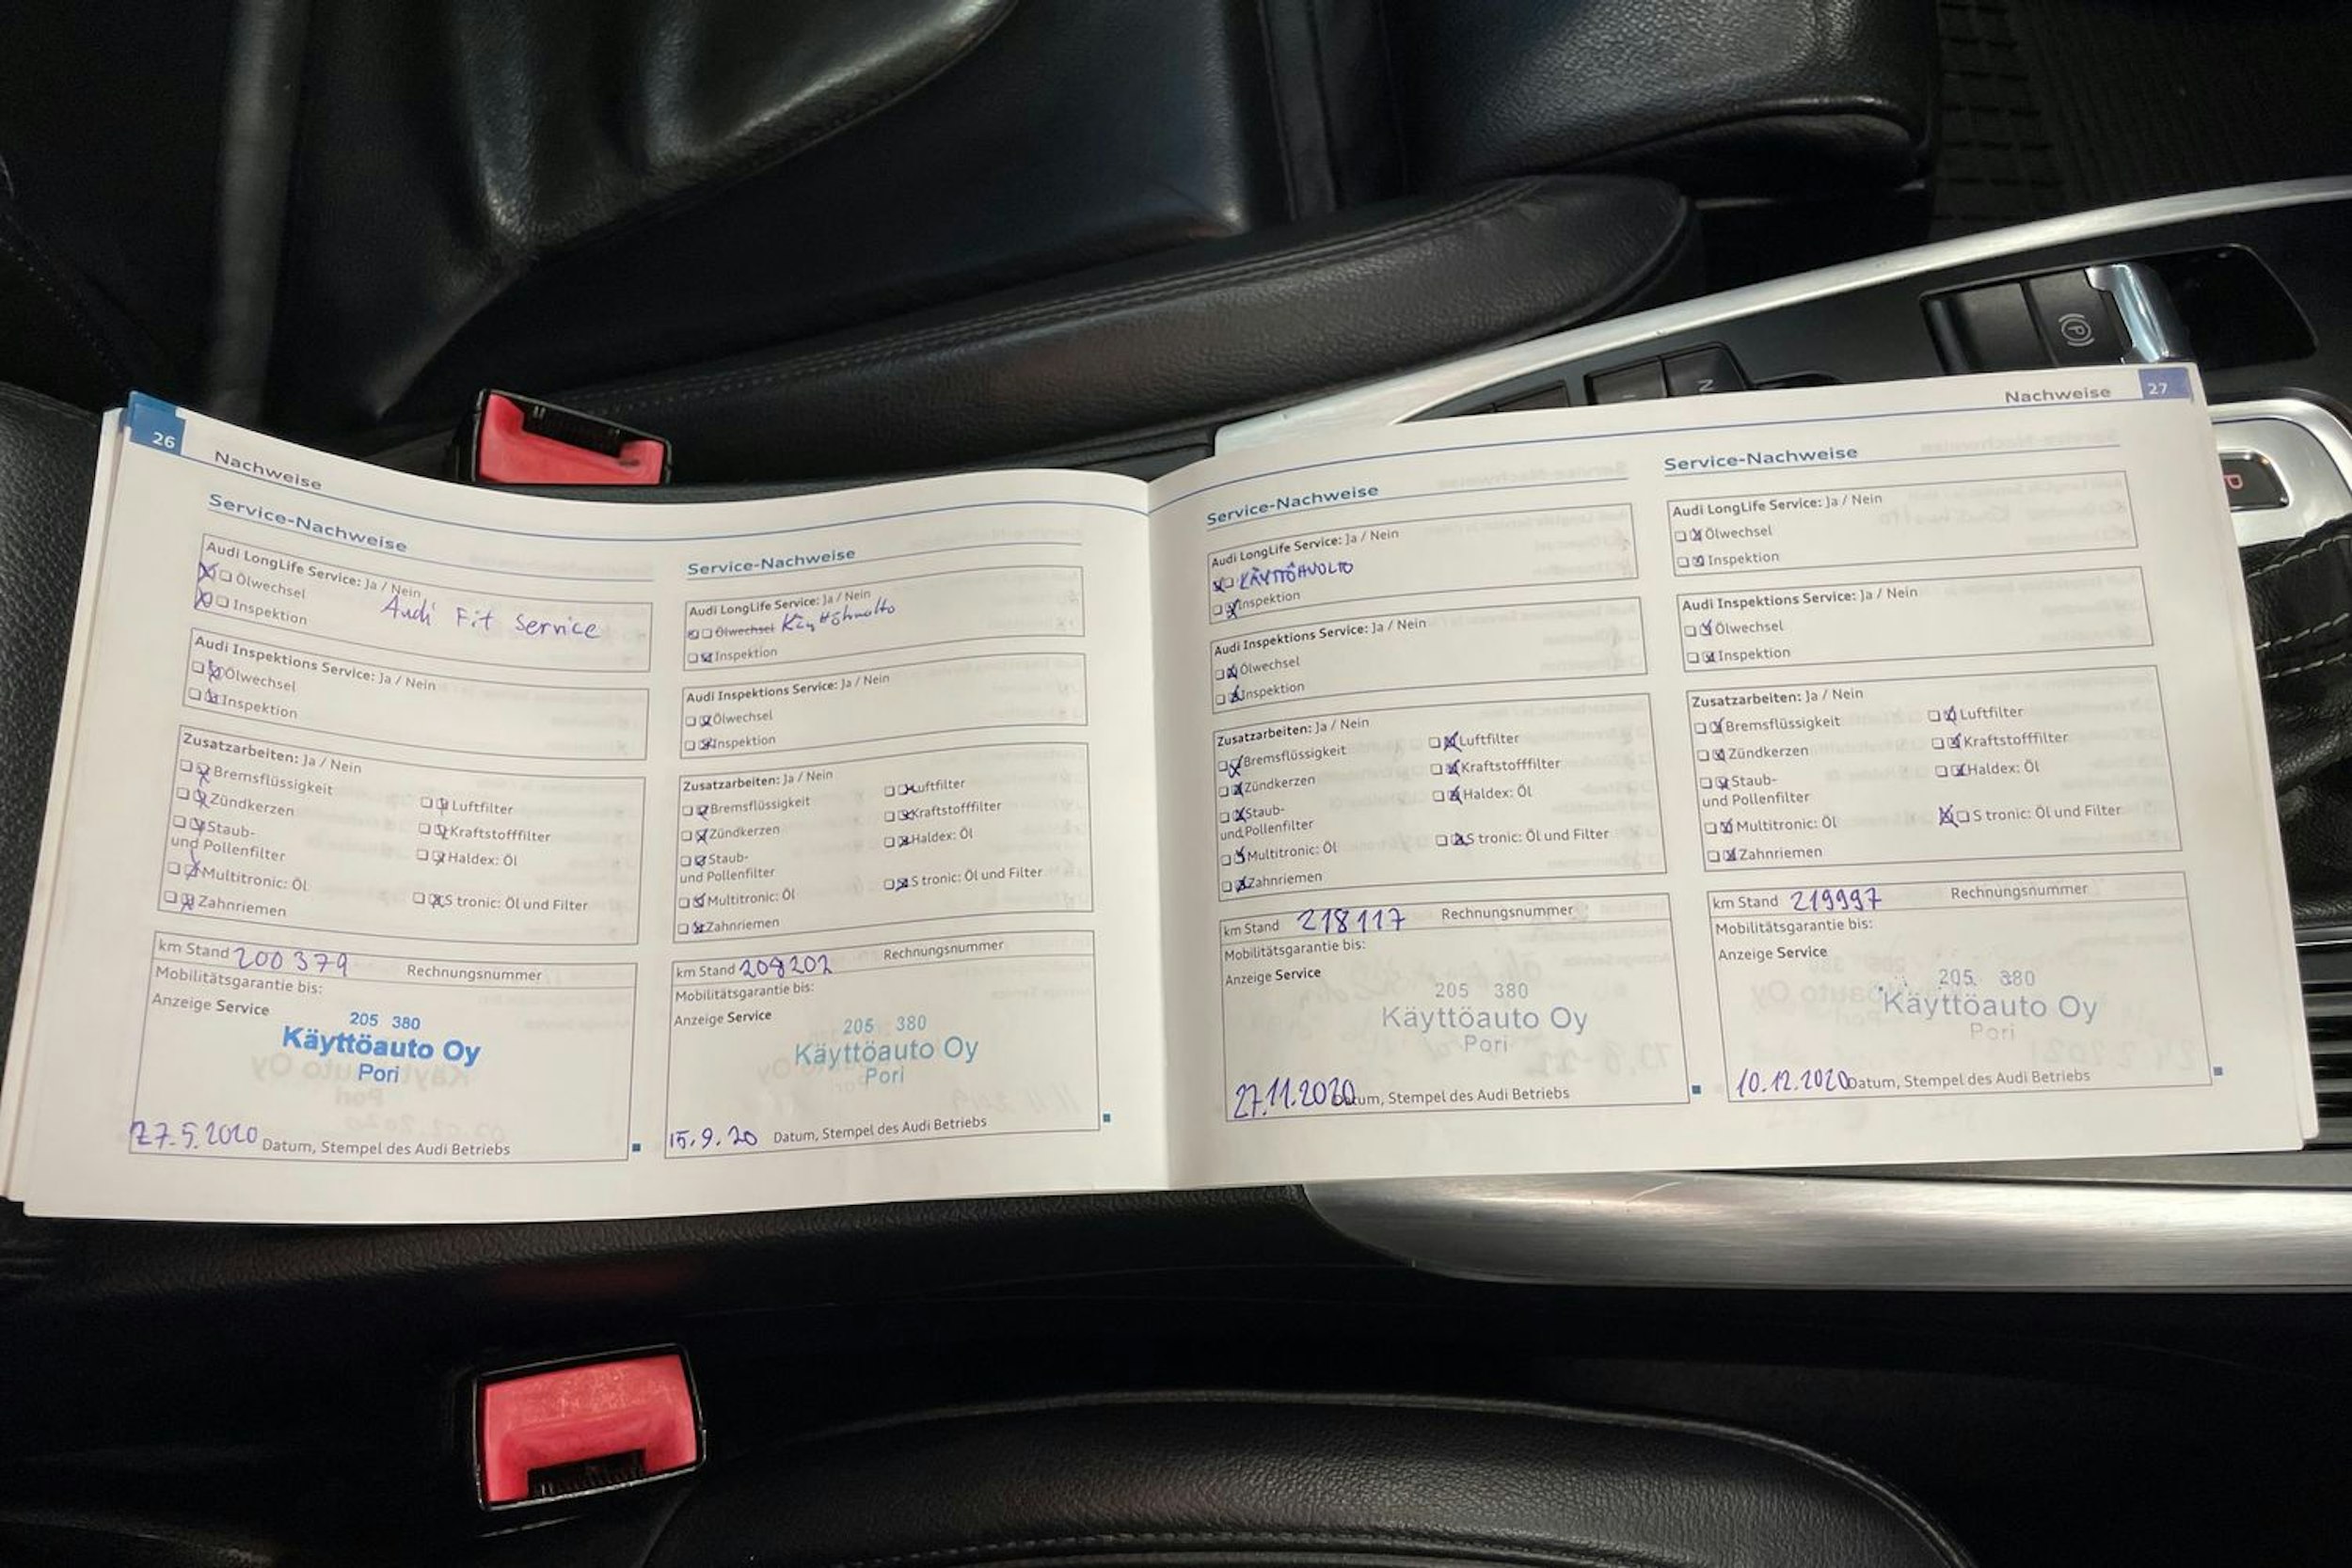 26
Nachweise
Service-Nachweise
Audi LongLife Service: Ja / Nein
Ölwechsel
Audi Fit Service
Inspektion
Audi Inspektions Service: Ja / Nein
Ölwechsel
Inspektion
Zusatzarbeiten: Ja / Nein
Bremsflüssigkeit
Zündkerzen
Luftfilter
Staub-
und Pollenfilter
Kraftstofffilter
Haldex: Öl
Multitronic: Öl
Zahnriemen
S tronic: Öl und Filter
km Stand 200379 Rechnungsnummer
Mobilitätsgarantie bis:
Anzeige Service
205 380
Käyttöauto Oy
Pori
27.5.2020 Datum, Stempel des Audi Betriebs
Service-Nachweise
Audi LongLife Service: Ja / Nein
Ölwechsel Käyttöhuolto
Inspektion
Audi Inspektions Service: Ja / Nein
Ölwechsel
Inspektion
Zusatzarbeiten: Ja / Nein
Bremsflüssigkeit Luftfilter
Zündkerzen Kraftstofffilter
Staub- Haldex: Öl
und Pollenfilter
Multitronic: Öl S tronic: Öl und Filter
Zahnriemen
km Stand 208202 Rechnungsnummer
Mobilitätsgarantie bis:
Anzeige Service
205 380
Käyttöauto Oy
Pori
15.9.20 Datum, Stempel des Audi Betriebs
Nachweise 27
Service-Nachweise
Audi LongLife Service: Ja / Nein
KÄYTTÖHUOLTO
Inspektion
Audi Inspektions Service: Ja / Nein
Ölwechsel
Inspektion
Zusatzarbeiten: Ja / Nein
Bremsflüssigkeit Luftfilter
Zündkerzen Kraftstofffilter
Staub- Haldex: Öl
und Pollenfilter
Multitronic: Öl S tronic: Öl und Filter
Zahnriemen
km Stand 218117 Rechnungsnummer
Mobilitätsgarantie bis:
Anzeige Service
205 380
Käyttöauto Oy
Pori
27.11.2020 Datum, Stempel des Audi Betriebs
Service-Nachweise
Audi LongLife Service: Ja / Nein
Ölwechsel
Inspektion
Audi Inspektions Service: Ja / Nein
Ölwechsel
Inspektion
Zusatzarbeiten: Ja / Nein
Bremsflüssigkeit Luftfilter
Zündkerzen Kraftstofffilter
Staub- Haldex: Öl
und Pollenfilter
Multitronic: Öl S tronic: Öl und Filter
Zahnriemen
km Stand 219997 Rechnungsnummer
Mobilitätsgarantie bis:
Anzeige Service
205 380
Käyttöauto Oy
Pori
10.12.2020 Datum, Stempel des Audi Betriebs
(P)
N
P